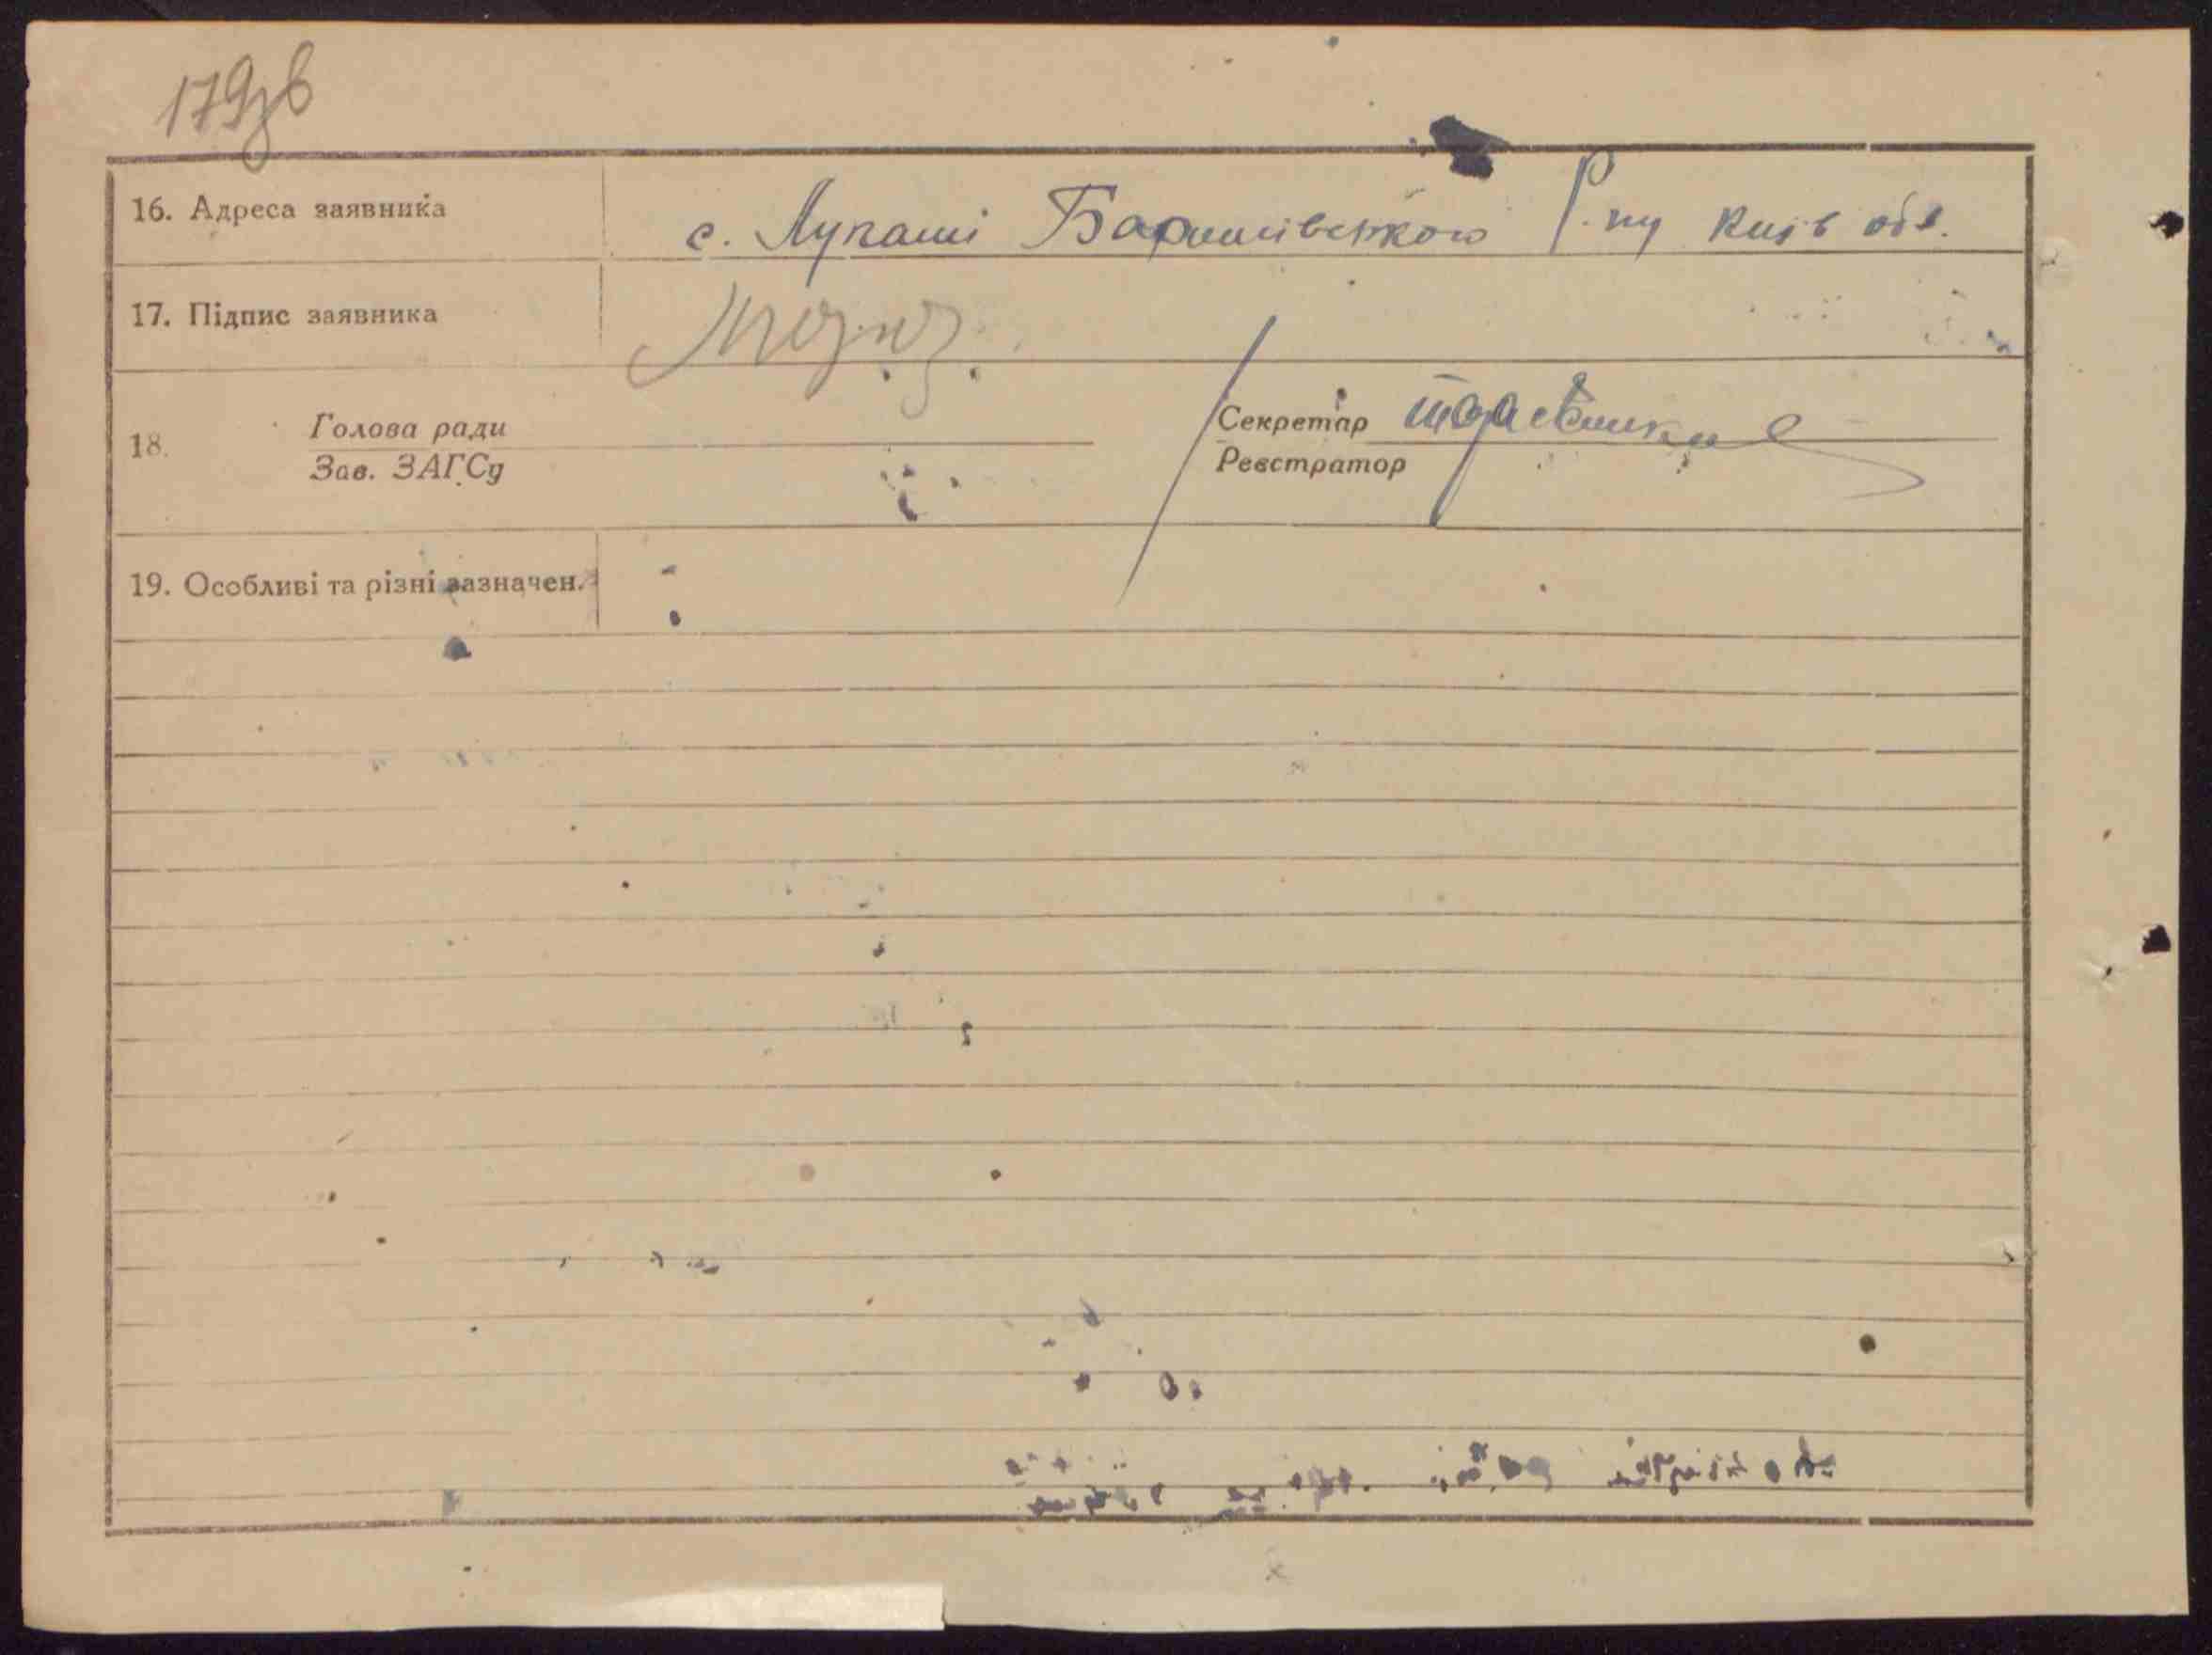 179зв
16. Адреса заявника с. Лупаші Баришівського Р-ну Київ обл.
17. Підпис заявника
18. Голова ради Секретар
Зав. ЗАГСу Реєстратор
19. Особливі та різні зазначен.